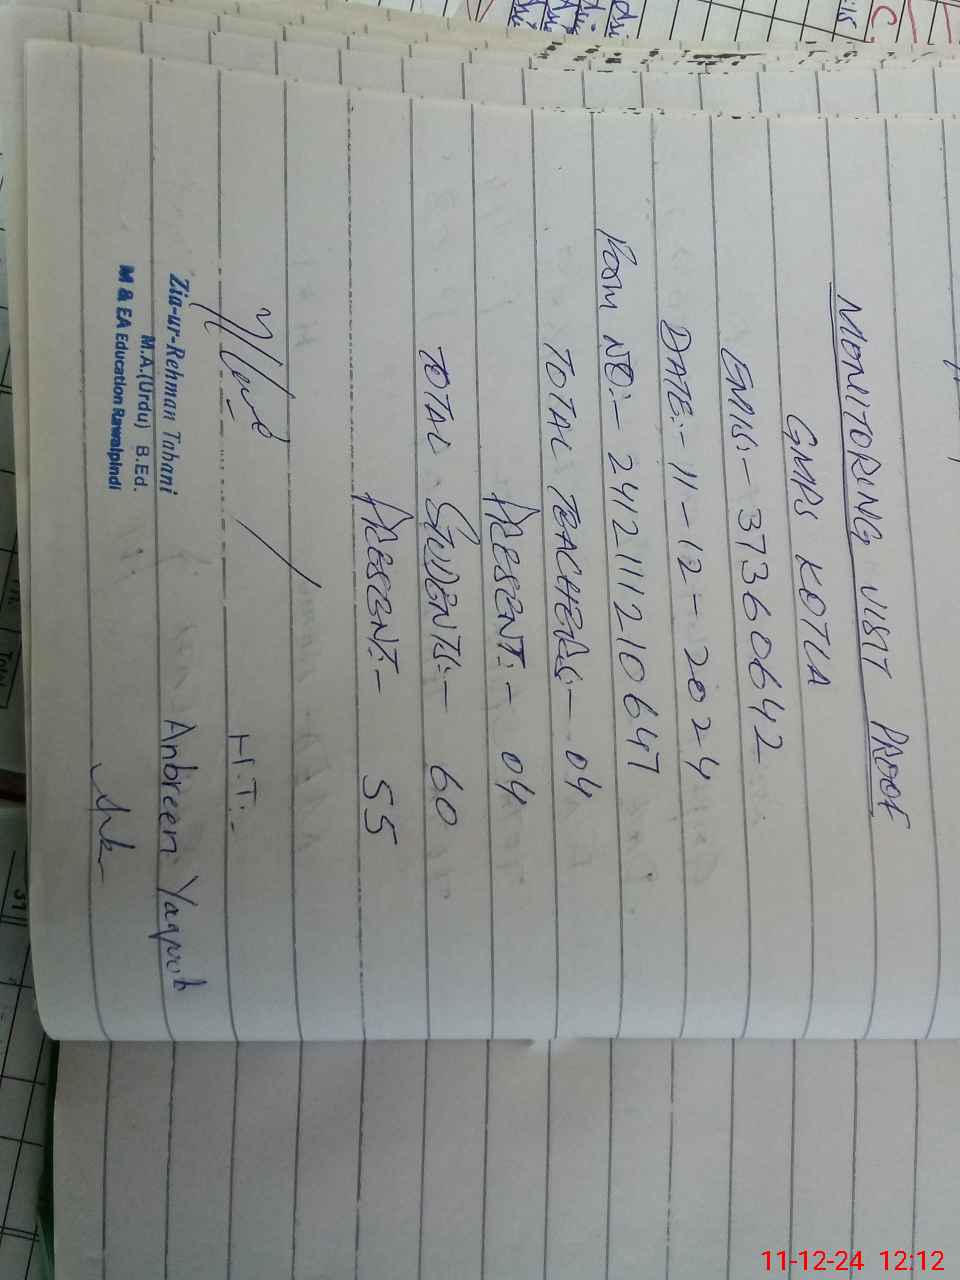 MONITORING VISIT PROOF
GMPS KOTLA
EMIS:- 37360642
DATE:- 11-12-2024
FORM NO:- 2412111210647
TOTAL TEACHERS:- 04
PRESENT:- 04
TOTAL STUDENTS:- 60
PRESENT:- 55
H.T:-
Anbreen Yaqoob
Zia-ur-Rehman Tahani
M.A.(Urdu) B.Ed.
M & EA Education Rawalpindi
11-12-24 12:12